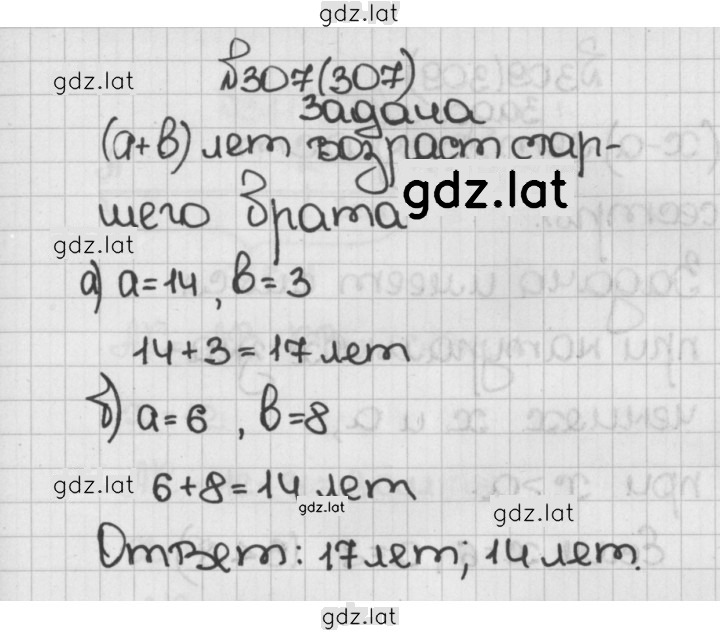 gdz.lat
№307(307)
gdz.lat
задача
(а+в) лет возраст стар-
gdz.lat
шего брата
gdz.lat
а) а=14, в=3
14+3=17 лет
б) а=6, в=8
gdz.lat 6+8=14 лет
gdz.lat
gdz.lat
Ответ: 17 лет; 14 лет.
gdz.lat